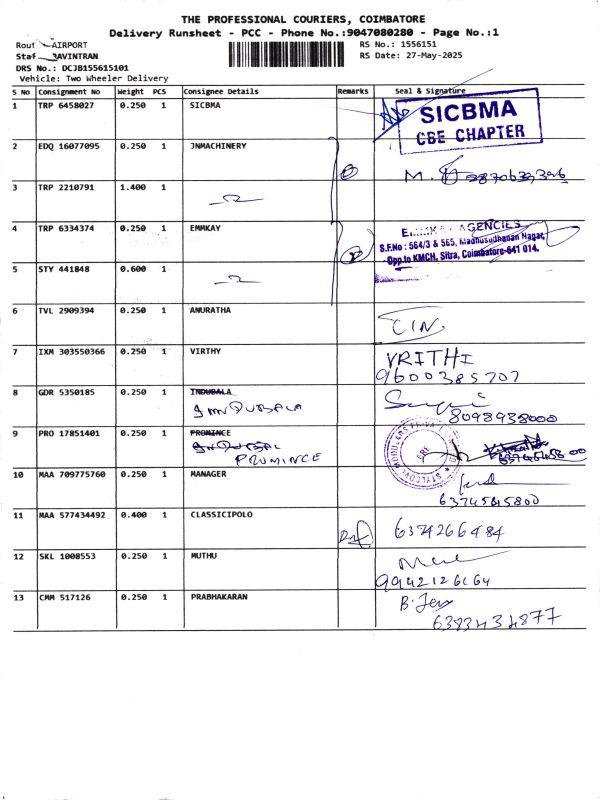 THE PROFESSIONAL COURIERS, COIMBATORE
Delivery Runsheet - PCC - Phone No.:9047080280 - Page No.:1
AIRPORT
RS No.: 1556151
RS Date: 27-May-2025
DRS No.: DCJB155615101
Vehicle: Two Wheeler Delivery
S No Consignment No Weight PCS Consignee Details Remarks Seal & Signature
1 TRP 6458027 0.250 1 SICBMA
SICBMA
CBE CHAPTER
2 EDQ 16077095 0.250 1 JNMACHINERY
3 TRP 2210791 1.400 1
4 TRP 6334374 0.250 1 EMMKAY
AGENCIES
S.F.No : 564/3 & 565, Madhusudhanan Nagar,
Opp.to KMCH, Sitra, Coimbatore-641 014.
5 STY 441848 0.600 1
6 TVL 2909394 0.250 1 ANURATHA
7 IXM 303550366 0.250 1 VIRTHY
VRITHI
9600385707
8 GDR 5350185 0.250 1 INDUBALA
8098938000
9 PRO 17851401 0.250 1 PROMINCE
PROMINCE
10 MAA 709775760 0.250 1 MANAGER
6374545800
11 MAA 577434492 0.400 1 CLASSICIPOLO
6374266484
12 SKL 1008553 0.250 1 MUTHU
9942126164
13 CMM 517126 0.250 1 PRABHAKARAN
6383434877